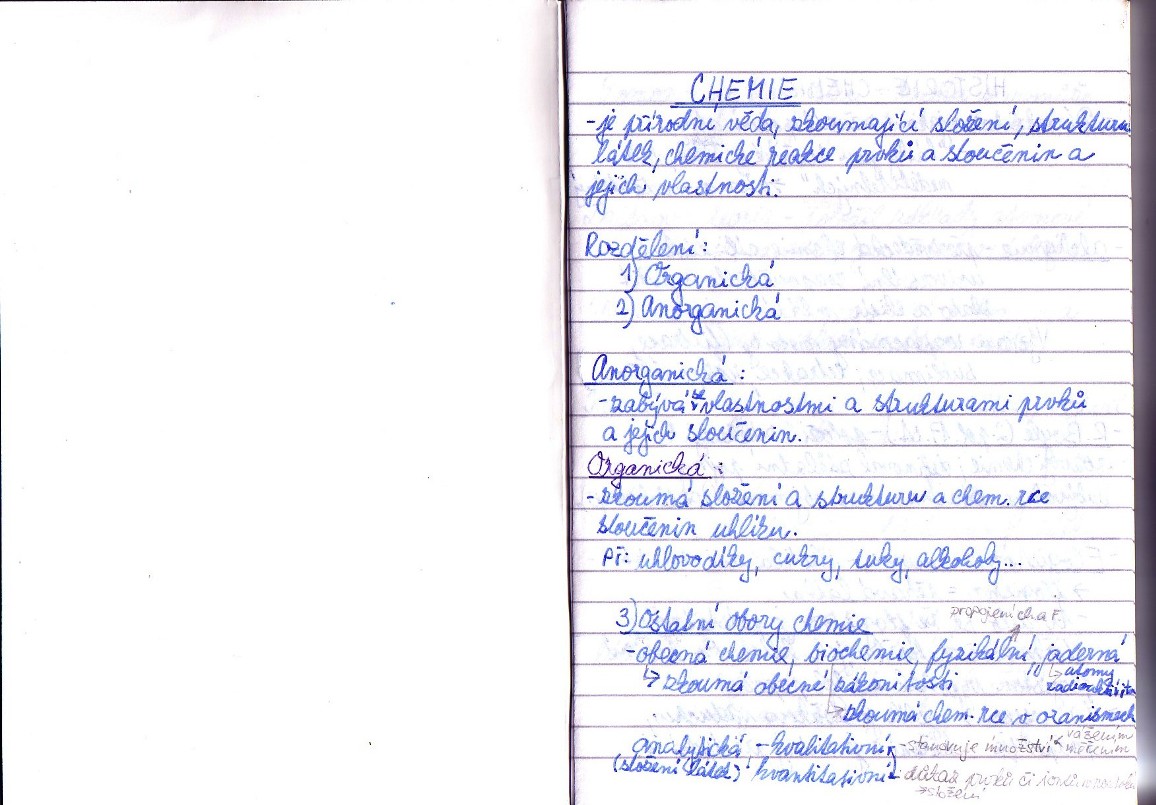 CHEMIE
-je přírodní věda, zkoumající složení, strukturu
látek, chemické reakce prvků a sloučenin a
jejich vlastnosti.
Rozdělení:
1) Organická
2) Anorganická
Anorganická:
-zabývá se vlastnostmi a strukturami prvků
a jejich sloučenin.
Organická:
-zkoumá složení a strukturu a chem. rce
sloučenin uhlíku.
Př: uhlovodíky, cukry, tuky, alkoholy...
propojení ch a F.
3) Ostatní obory chemie
-obecná chemie, biochemie, fyzikální, jaderná
↳ zkoumá obecné zákonitosti
↳ atomy
radioaktivita
↳ zkoumá chem. rce v oranismech
analytická, -kvalitativní -stanovuje množství vážením
měřením
(složení látek) kvantitativní -důkaz prvků či iontů
→složení